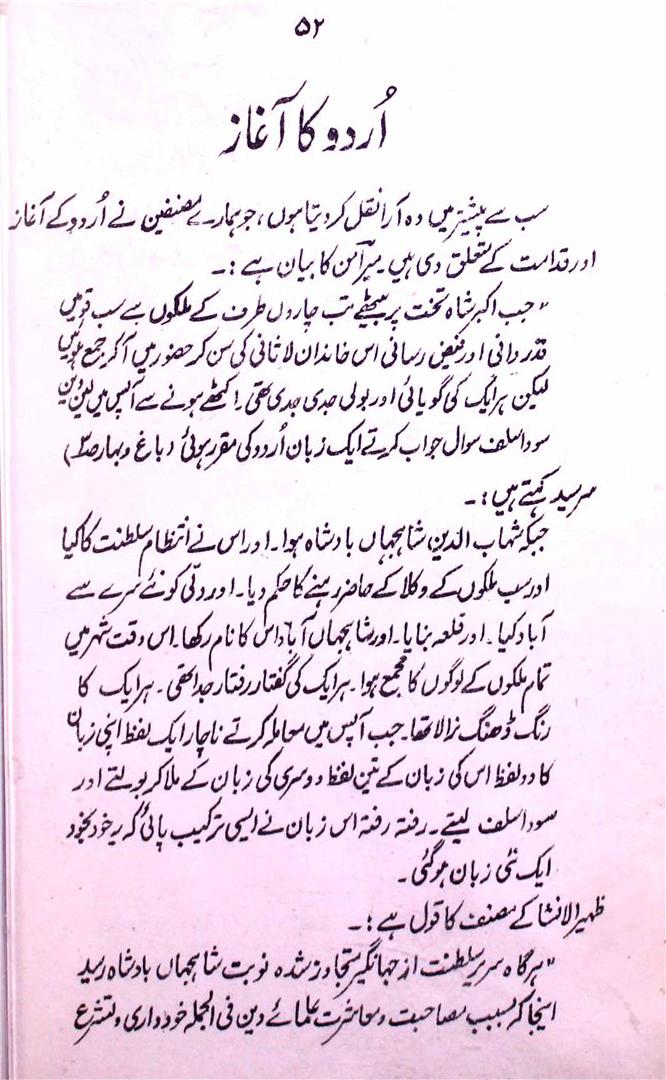 ۵۲
اُردو کا آغاز
سب سے پیشتر میں وہ آرا نقل کر دیتا ہوں، جو ہمارے مصنفین نے اُردو کے آغاز
اور قدامت کے متعلق دی ہیں۔ میر امن کا بیان ہے :۔
"جب اکبر شاہ تخت پر بیٹھے تب چاروں طرف کے ملکوں سے سب قومیں
قدردانی اور فیض رسانی اس خاندان لاثانی کی سن کر حضور میں آ کر جمع ہوئیں
لیکن ہر ایک کی گویائی اور بولی جدی جدی تھی۔ اکٹھے ہونے سے آپس میں لین دین
سودا سلف سوال جواب کرتے ایک زبان اُردو کی مقرر ہوئی (باغ و بہار ص۴)
سر سید کہتے ہیں :۔
جبکہ شہاب الدین شاہجہاں بادشاہ ہوا۔ اور اس نے انتظام سلطنت کا کیا
اور سب ملکوں کے وکلا کے حاضر رہنے کا حکم دیا۔ اور دلّی کو نئے سرے سے
آباد کیا۔ اور قلعہ بنایا۔ اور شاہجہاں آباد اس کا نام رکھا۔ اس وقت شہر میں
تمام ملکوں کے لوگوں کا مجمع ہوا۔ ہر ایک کی گفتار رفتار جدا تھی۔ ہر ایک کا
رنگ ڈھنگ نرالا تھا۔ جب آپس میں معاملہ کرتے ناچار ایک لفظ اپنی زبان
کا دو لفظ اس کی زبان کے تین لفظ دوسری کی زبان کے ملا کر بولتے اور
سودا سلف لیتے۔ رفتہ رفتہ اس زبان نے ایسی ترکیب پائی کہ یہ خود بخود
ایک نئی زبان ہو گئی۔
ظہیر الانشا کے مصنف کا قول ہے :۔
"ہرگاہ سریر سلطنت از جہانگیر متجاوز شدہ نوبت شاہجہاں بادشاہ رسید
اینجا کہ بسبب مصاحبت و معاشرت علمائے دین فی الجملہ خودداری و تشرع